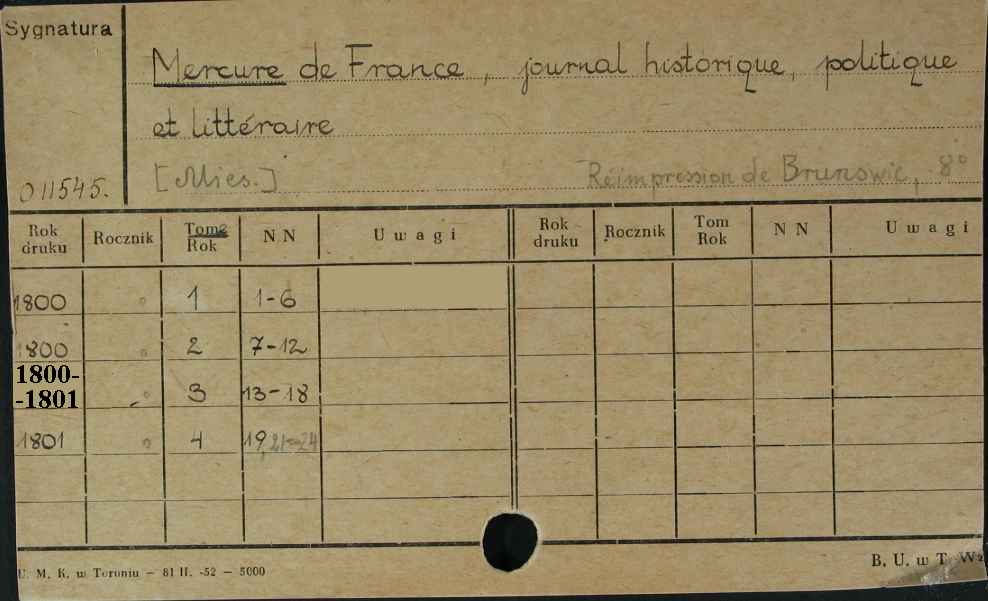 Sygnatura
Mercure de France, journal historique, politique
et littéraire
011545. [Mies.] Réimpression de Brunswic, 8°
Rok druku Rocznik Tome Rok N N Uwagi Rok druku Rocznik Tom Rok N N Uwagi
1800 1 1-6
1800 2 7-12
1800-
-1801 3 13-18
1801 4 19,21-24
U. M. K. w Toruniu — 81 II. -52 — 5000
B. U. w T.